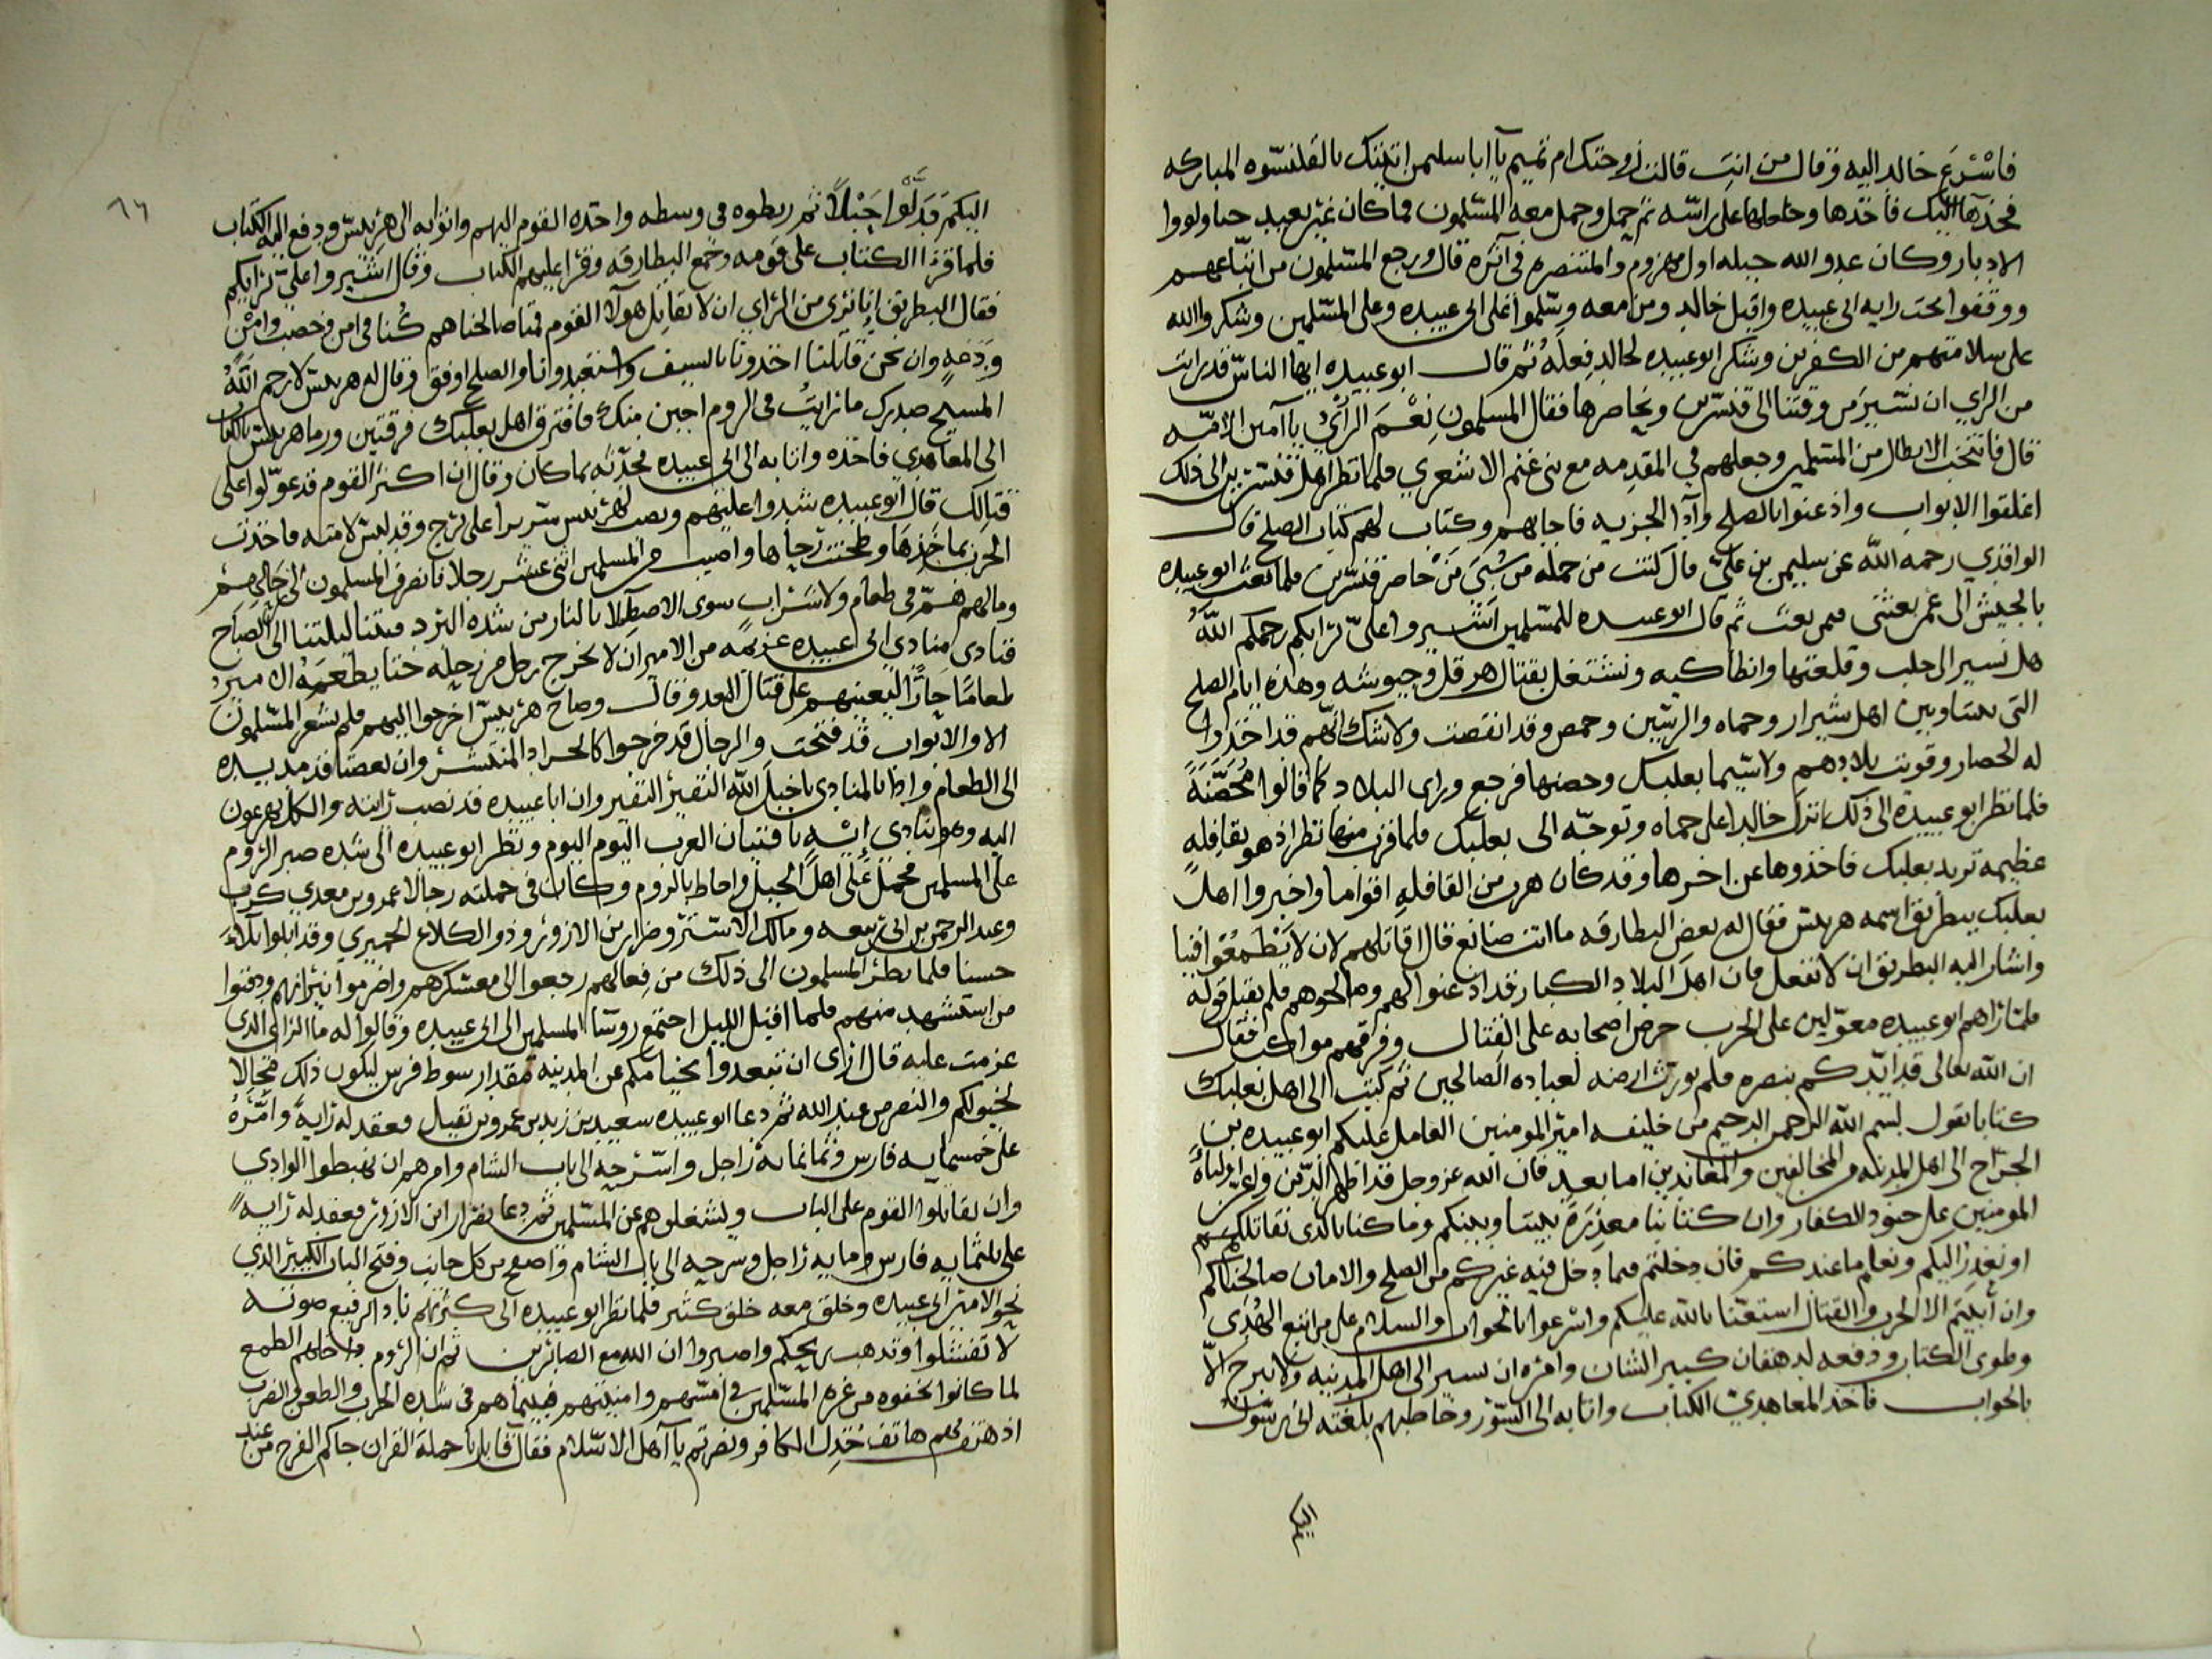 فاسْرَع خالد اليه وقال من انتِ قالت زوجتك ام تميم يا ابا سليمن اتيتك بالقلنسّوه المباركه
فخذها اليك فاخذها وجعلها على راسّه ثم حمل وحمل معه المسّلمون فما كان غير بعيد حتا ولووا
الادبار وكان عدو الله جبله اول مهزوم والمتنصره في اثره قال ورجع المسّلمون من اتبّاعهم
ووقفوا تحت رايه ابي عبيده واقبل خالد ومن معه وسّلموا على ابي عبيده وعلى المسّلمين وشكروا الله
على سلامتهم من الكفرين وشكر ابو عبيده لخالد فِعلَهُ ثم قال ابو عبيده ايها الناسّ قد رايت
من الراي ان نسّير من وقتنا الى قنسّرين ونحاصرها فقال المسلمون نِعْمَ الرّايُ يا امين الامّه
قال فانتخب الابطال من المسّلمين وجعلهم في المقدمه مع بني غنم الاشعري فلما نظر اهل قنسّرين الى ذلك
اغلقوا الابواب واذعنوا بالصلح وادا الجزيه فاجابهم وكتاب لهم كتاب الصلح قال
الواقدي رحمه الله عن سليمن بن عليّ قال كنت من جمله من حاصر قنسّرين فلما بعث ابو عبيده
بالجيش الى عمر بعثني فيمن بعث ثم قال ابو عبيده للمسّلمين اشيروا عليّ برايكم رحمكم اللّه
هل نسير الى حلب وقلعتها وانطاكيه ونشتغل بقتال هرقل وجيوشه وهذه ايام الصلح
التى بيننا وبين اهل شيرار وحماه والرسّتين وحمص وقد انقصت ولا شك انّهم قد اخذوا
له الحصار وقويت بلادهم ولا سّيما بعلبك وحصنها فرجع وراى البلاد كما قالوا مُحصّنَةً
فلما نظر ابو عبيده الى ذلك انزل خالدا على حماه وتوجّه الى بعلبك فلما قرب منها نظر اذ هو بقافِلهٍ
عظيمه تريد بعلبك فاخذوها عن اخرها وقد كان هرب من القافلهِ اقواما واخبروا اهل
بعلبك ببطريق اسمه هربيس فقال له بعض البطارقه ما انت صانع قال اقاتلهم لان لا يَطْمعُوا فينا
واشار اليه البطريق ان لا تفعل فان اهل البلاد الكبار قد اذعنوا لهم وصالحوهم فلم يقبل قوله
فلما راهم ابو عبيده معوّلين على الحرب حرض اصحابه على القتال وفرقهم مواكب فقال
ان الله تعالى قد ايّدكم بنصره فلم يورث ارضه لعباده الصالحين ثم كتب الى اهل بعلبك
كتابا يقول بسم الله الرحمن الرحيم من خليفه امير المومنين العامل عليكم ابو عبيده بن
الجرّاح الى اهل المدينه من المخالفين والمعاندين اما بعد فان الله عز وجل قد اظهر الدّين واعز اولياهُ
المومنين على جنود الكفار وان كتابنا معذِرَة بيننا وبينكم وما كنا بالذى نقاتلكم
او نعذر اليكم ونعلم ما عندكم فان دخلتم فيما دخل فيه غيركم من الصلح والامان صالحناكم
وان أبَيْتم الا الحرب والقتال استعنّا بالله عليكم واسّرعوا بالجواب والسلام على من اتبع الهُدَى
وطوى الكتاب ودفعه لدهقان كبير الشان وامره ان يسير الى اهل المدينه ولا يبرح الّا
بالجواب فاخذ المعاهديّ الكتاب واتا به الى السّور وخاطبهم بلغته اني رسّول
اليكم
٦٦
اليكم فدَلَّوْا حَبْلاً ثم ربطوه في وسطه واخذه القوم اليهم واتوا به الى هربيسّ ودفع اليه الكتاب
فلما قرا الكتاب على قومه وجمع البطارقه وقرا عليهم الكتاب وقال اشيروا عليّ برايكم
فقال البطريق انا نرى من الراي ان لا نقاتل هولا القوم فمتا صالحناهم كُنا في امن وخصب وامن
ودَعَهٍ وان نحن قاتلنا اخذونا بالسيف واستعبدونا والصلح اوفق وقال له هربيس لا رحم اللّهُ
المسيح صبرك ما رايتُ في الروم اجبن منك فافترق اهل بعلبك فرقتين ورما هربيس بالكتاب
الى المعاهدي فاخذه واتا به الى ابي عبيده فحدّثه بما كان وقال ان اكثر القوم قد عوّلوا على
قتالك قال ابو عبيده شدوا عليهم ونصب لهربيس سّريرا على برج وقد لبسّ لامته فاخذت
الحرب ماخذها وطحنت رحاها واصيب من المسلمين اثني عشر رجلا فانصرف المسلمون الى رحالهم
وما لهم همّ في طعام ولا شراب سوى الاصطلا بالنار من شده البرد فبتنا ليلتنا الى الصباح
فنادى منادي ابي عبيده عزيمه من الامير ان لا يخرج رجل من رحله حتا يطعمه الامير
طعامًا حارًّا ليعينهم على قتال العدو قال وصاح هربيسّ اخرجوا اليهم فلم يشعر المسّلمون
الا والابواب قد فتحت والرجال قد خرجوا كالجراد المنتشر وان بعضنا قد مد يده
الى الطعام واذا بالمنادي يا خيل الله النفير النفير وان ابا عبيده قد نصب رايته والكل يهرعون
اليه وهو ينادى يا فتيان العرب اليوم اليوم ونظر ابو عبيده الى شده صبر الروم
على المسلمين فحمل على اهل الجبل واحاط بالروم وكان في حملته رجالا عمرو بن معدي كرب
وعبد الرحمن بن ابي ربيعه ومالك الاشتر وضرار بن الازور وذو الكلاع الحميري وقد ابلوا بلاءً
حسنا فلما نظر المسلمون الى ذلك من فِعالهم رجعوا الى معسكرهم واضرموا نيرانهم ودفنوا
من استشهد منهم فلما اقبل الليل اجتمع روسّا المسلمين الى ابي عبيده وقالوا له ما الراي الذى
عزمت عليه قال ارى ان تبعدوا بخيامكم عن المدينه مقدار سوط فرس ليكون ذلك مجالا
لخيولكم والنصر من عند الله ثم دعا ابو عبيده سعيد بن زيد بن عمرو بن نفيل وعقد له رايةً وامّرَهُ
على خمسمايه فارس وثمانمايه راجل واسّرحه الى باب الشام وامرهم ان يهبطوا الوادي
وان يقاتلوا القوم على الباب وليشغلوهم عن المسّلمين ثم دعا بضرار ابن الازور فعقد له رايةً
على ثلثمايه فارس ومايه راجل وسرحه الى باب الشام واصبح من كل جانب وفتح الباب الكبير الذي
نحو الامير ابي عبيده وخلق معه خلق كثير فلما نظر ابو عبيده الى كثرتهم نادا برفيع صوته
لا تفشلوا وتذهب ريحكم واصبروا ان الله مع الصابرين ثم ان الروم داخلهم الطمع
لما كانوا تحفوه من غره المسّلمين في امسّهم وامنيتهم فبينما هم في شده الحرب والطعن والضرب
اذ هتف بهم هاتف خذل الكافر ونصرتم يا اهل الاسّلام فقال قايل يا حملة القران جاكم الفرج من عند